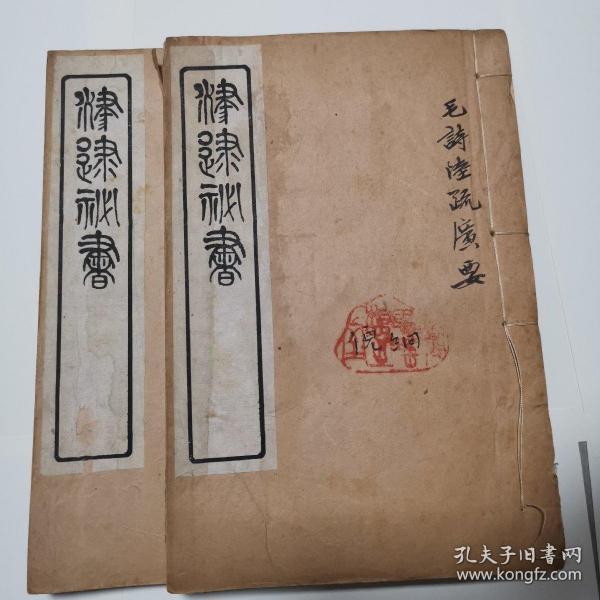 津逮祕書
津逮祕書
毛詩陸疏廣要
倪
孔夫子旧书网
www.kongfz.com